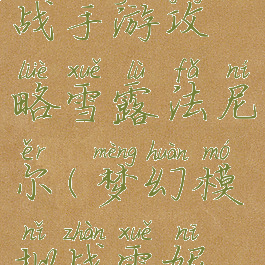 战手游攻
lüè xuě lù fǎ ní
略雪露法尼
ěr mèng huàn mó
尔(梦幻模
nǐ zhàn xuě nī
拟战雪妮